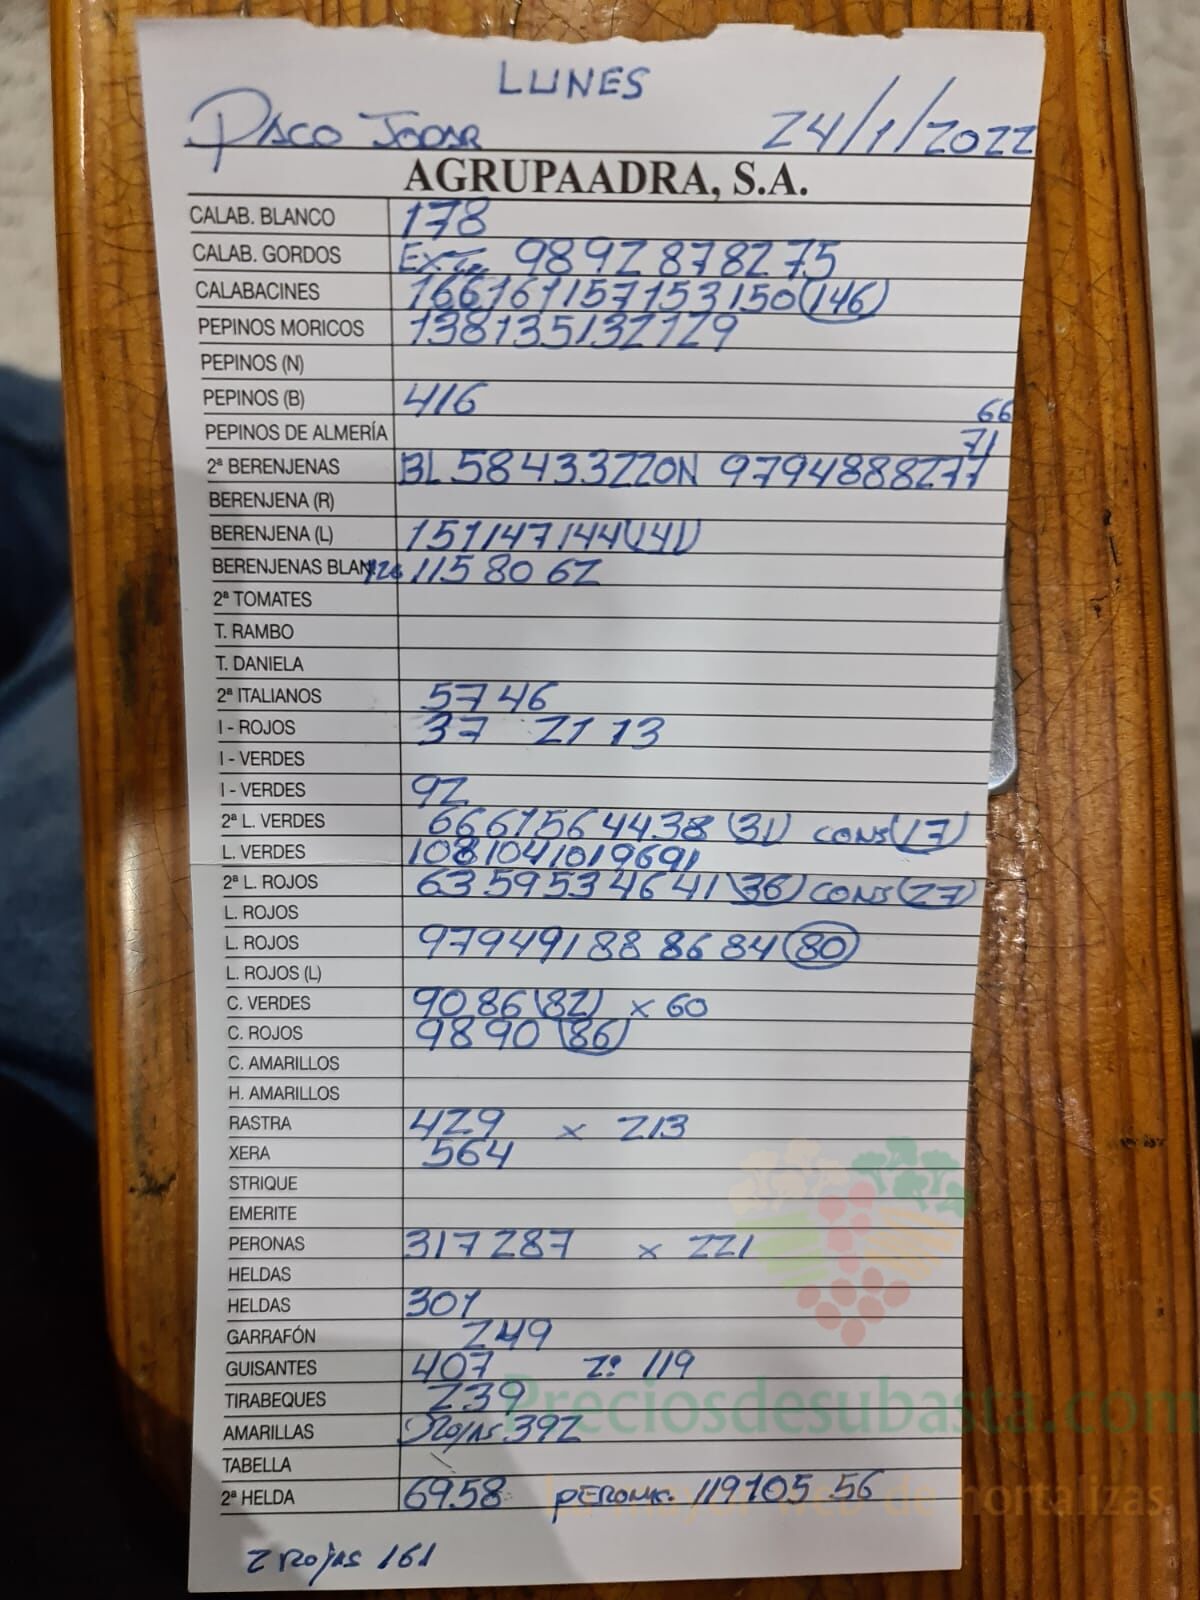 LUNES
PACO JODAR 24/1/2022
AGRUPAADRA, S.A.
CALAB. BLANCO 178
CALAB. GORDOS Ext. 98 92 87 82 75
CALABACINES 166 161 157 153 150 (146)
PEPINOS MORICOS 138 135 132 129
PEPINOS (N)
PEPINOS (B) 416
66
PEPINOS DE ALMERÍA 71
2ª BERENJENAS BL 58 43 32 20 N 97 94 88 82 77
BERENJENA (R)
BERENJENA (L) 151 147 144 (141)
BERENJENAS BLAN 126 115 80 62
2ª TOMATES
T. RAMBO
T. DANIELA
2ª ITALIANOS 57 46
I - ROJOS 37 21 13
I - VERDES
I - VERDES 92
2ª L. VERDES 66 61 56 44 38 (31) CONS (17)
L. VERDES 108 104 101 96 91
2ª L. ROJOS 63 59 53 46 41 (36) CONS (27)
L. ROJOS
L. ROJOS 97 94 91 88 86 84 (80)
L. ROJOS (L)
C. VERDES 90 86 (82) x 60
C. ROJOS 98 90 (86)
C. AMARILLOS
H. AMARILLOS
RASTRA 429 x 213
XERA 564
STRIQUE
EMERITE
PERONAS 317 287 x 221
HELDAS
HELDAS 301
GARRAFÓN 249
GUISANTES 407 2ª 119
TIRABEQUES 239
AMARILLAS Rojas 392
TABELLA
2ª HELDA 69 58 PERONA 119 105 56
2 Rojas 161
Preciosdesubasta.com
La mayor web de hortalizas